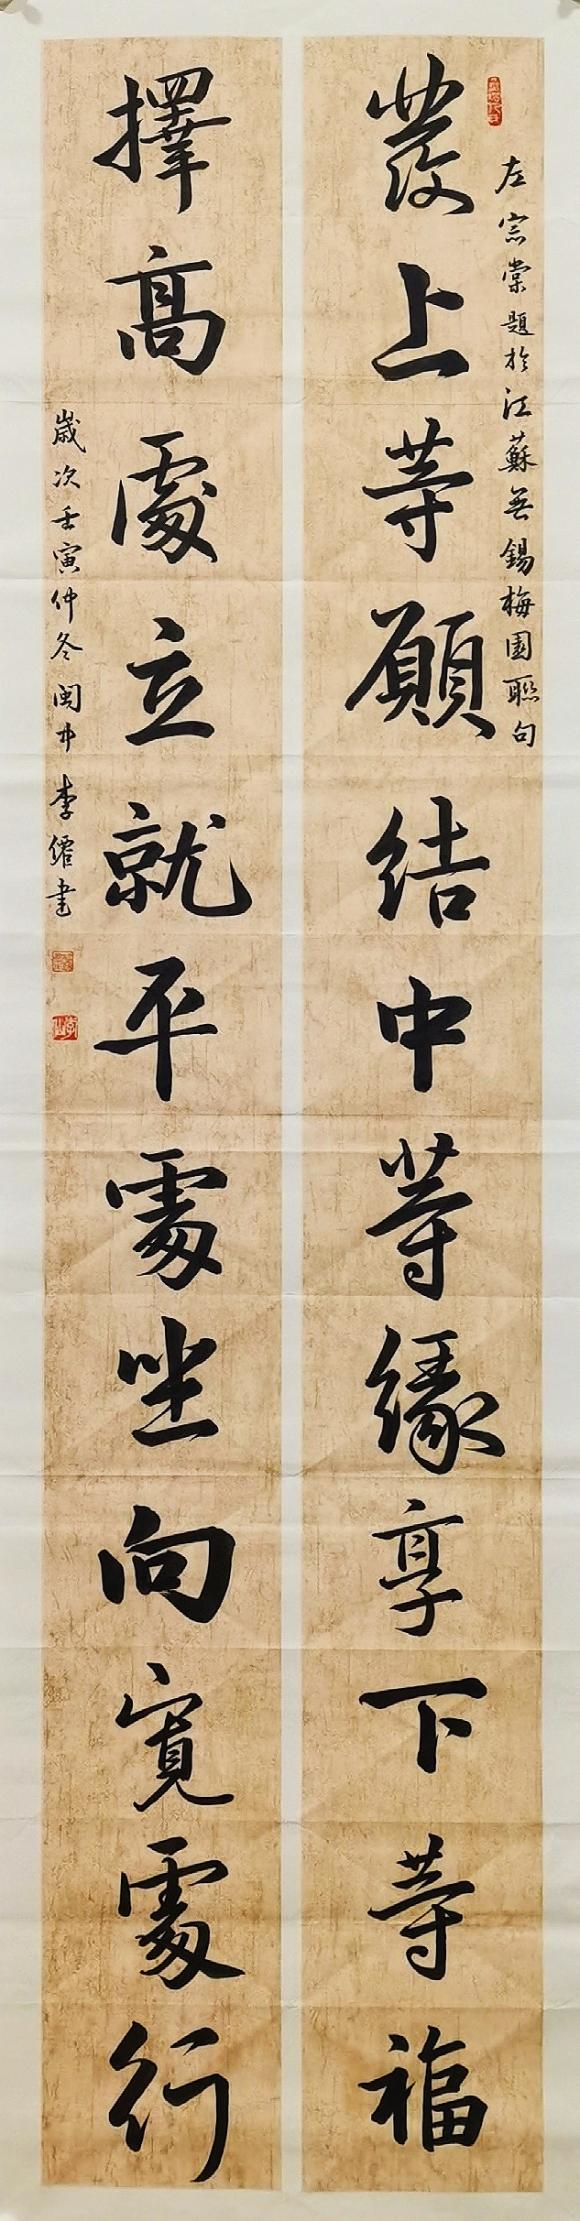 左宗棠題於江蘇無錫梅園聯句
發上等願結中等緣享下等福
擇高處立就平處坐向寬處行
歲次壬寅仲冬閩中李繙書